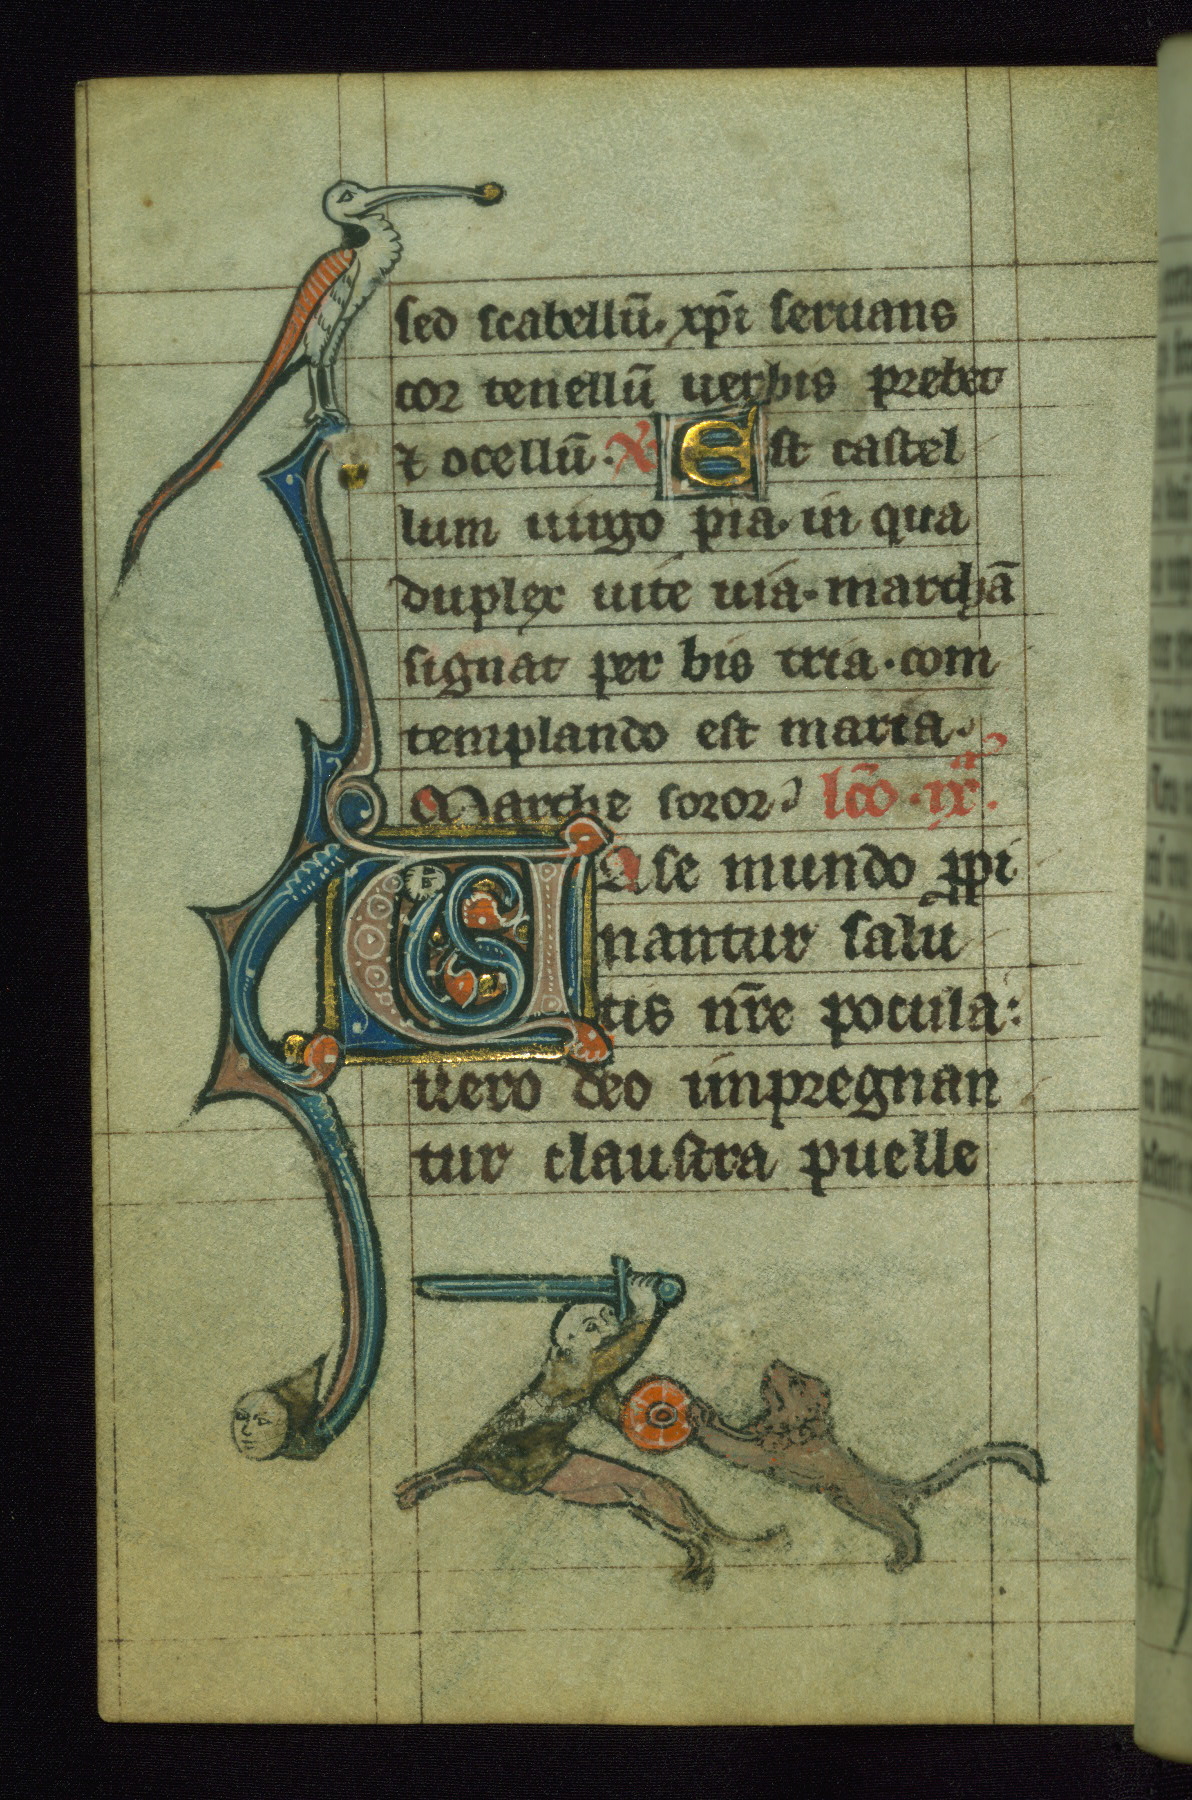 sed scabellū. xp̄i seruans
cor tenellū uerbis prebet
⁊ ocellū. X Est castel
lum uirgo pia. in qua
duplex uite uia. marchā
signat per bis tria. com
templando est maria.
Marche soror. lc̄o .ixa.
Ase mundo ppi
nantur salu
tis nr̄e pocula:
uero deo impregnan
tur claustra puelle